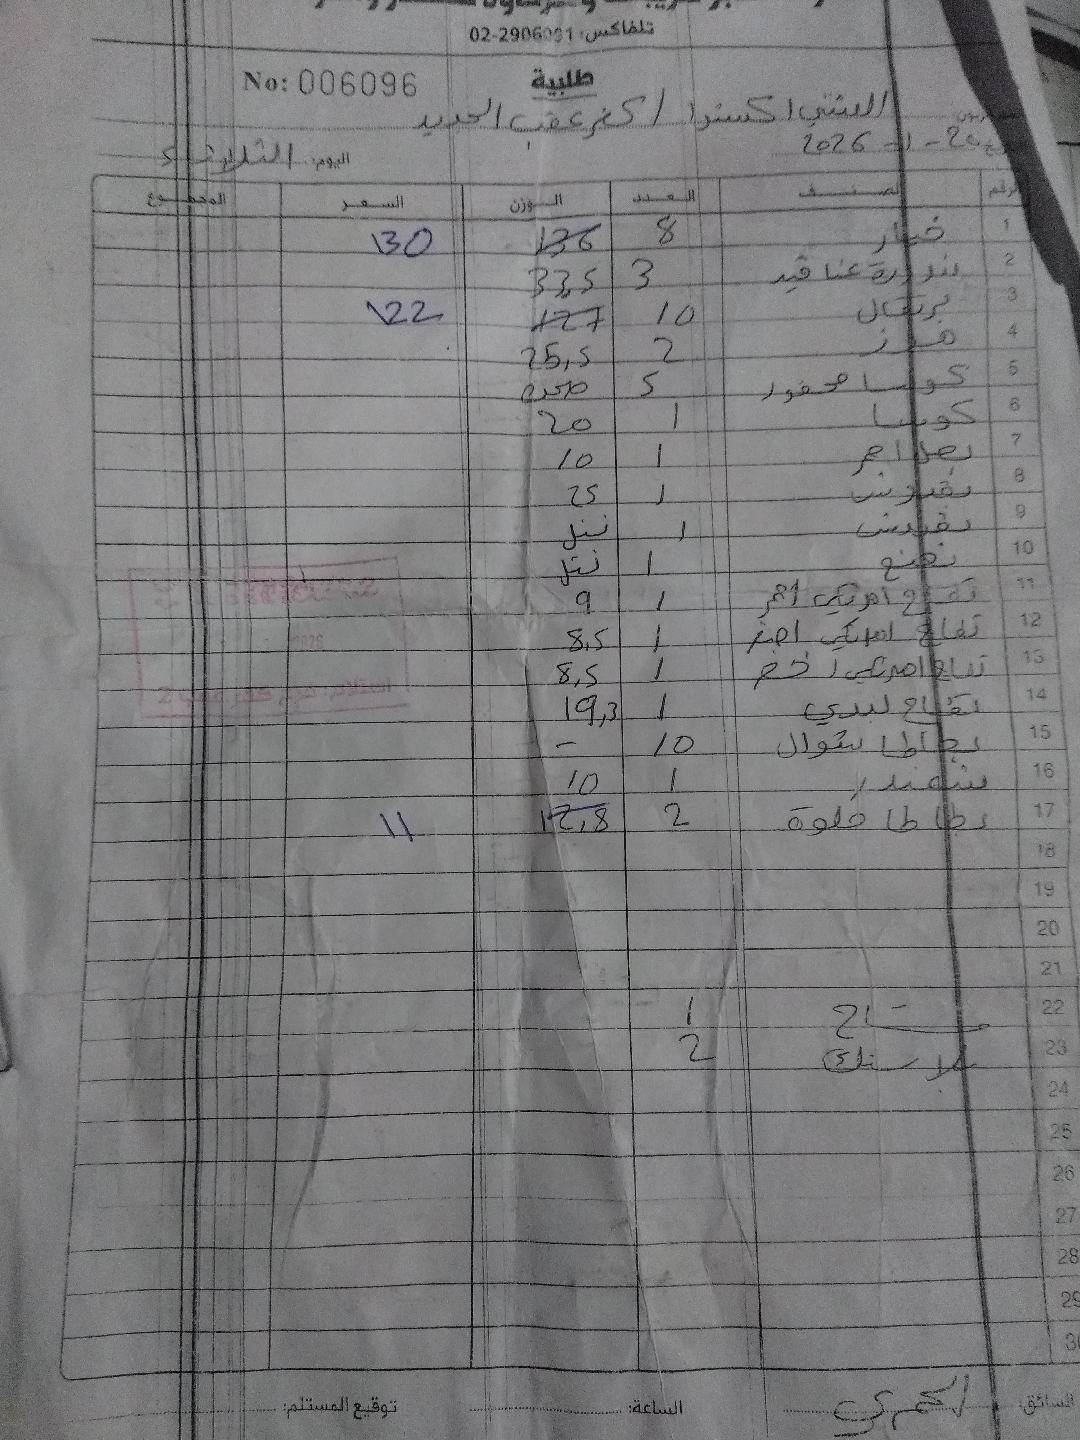 تلفاكس: 02-2906091
No: 006096
طلبية
اكسترا / كفر عقب الحديد
2026
اليوم: الثلاثاء
الرقم الصنف العدد الوزن السعر المجموع
1 خيار 8 136 130
2 بندورة عناقيد 3 33,5
3 برتقال 10 127 122
4 موز 2 25,5
5 كوسا محفور 5
6 كوسا 1 20
7 بصل احمر 1 10
8 بقدونس 1 25
9 بقدونس 1
10 نعنع 1
11 تفاح امريكي احمر 1 9
12 تفاح امريكي اصفر 1 8,5
13 تفاح امريكي اخضر 1 8,5
14 تفاح بلدي 1 19,3
15 بطاطا شوال 10 -
16 شمندر 1 10
17 بطاطا حلوة 2 12,8 11
18
19
20
21
22 1
23 بلاستك 2
24
25
26
27
28
29
30
السائق: الساعة: توقيع المستلم: